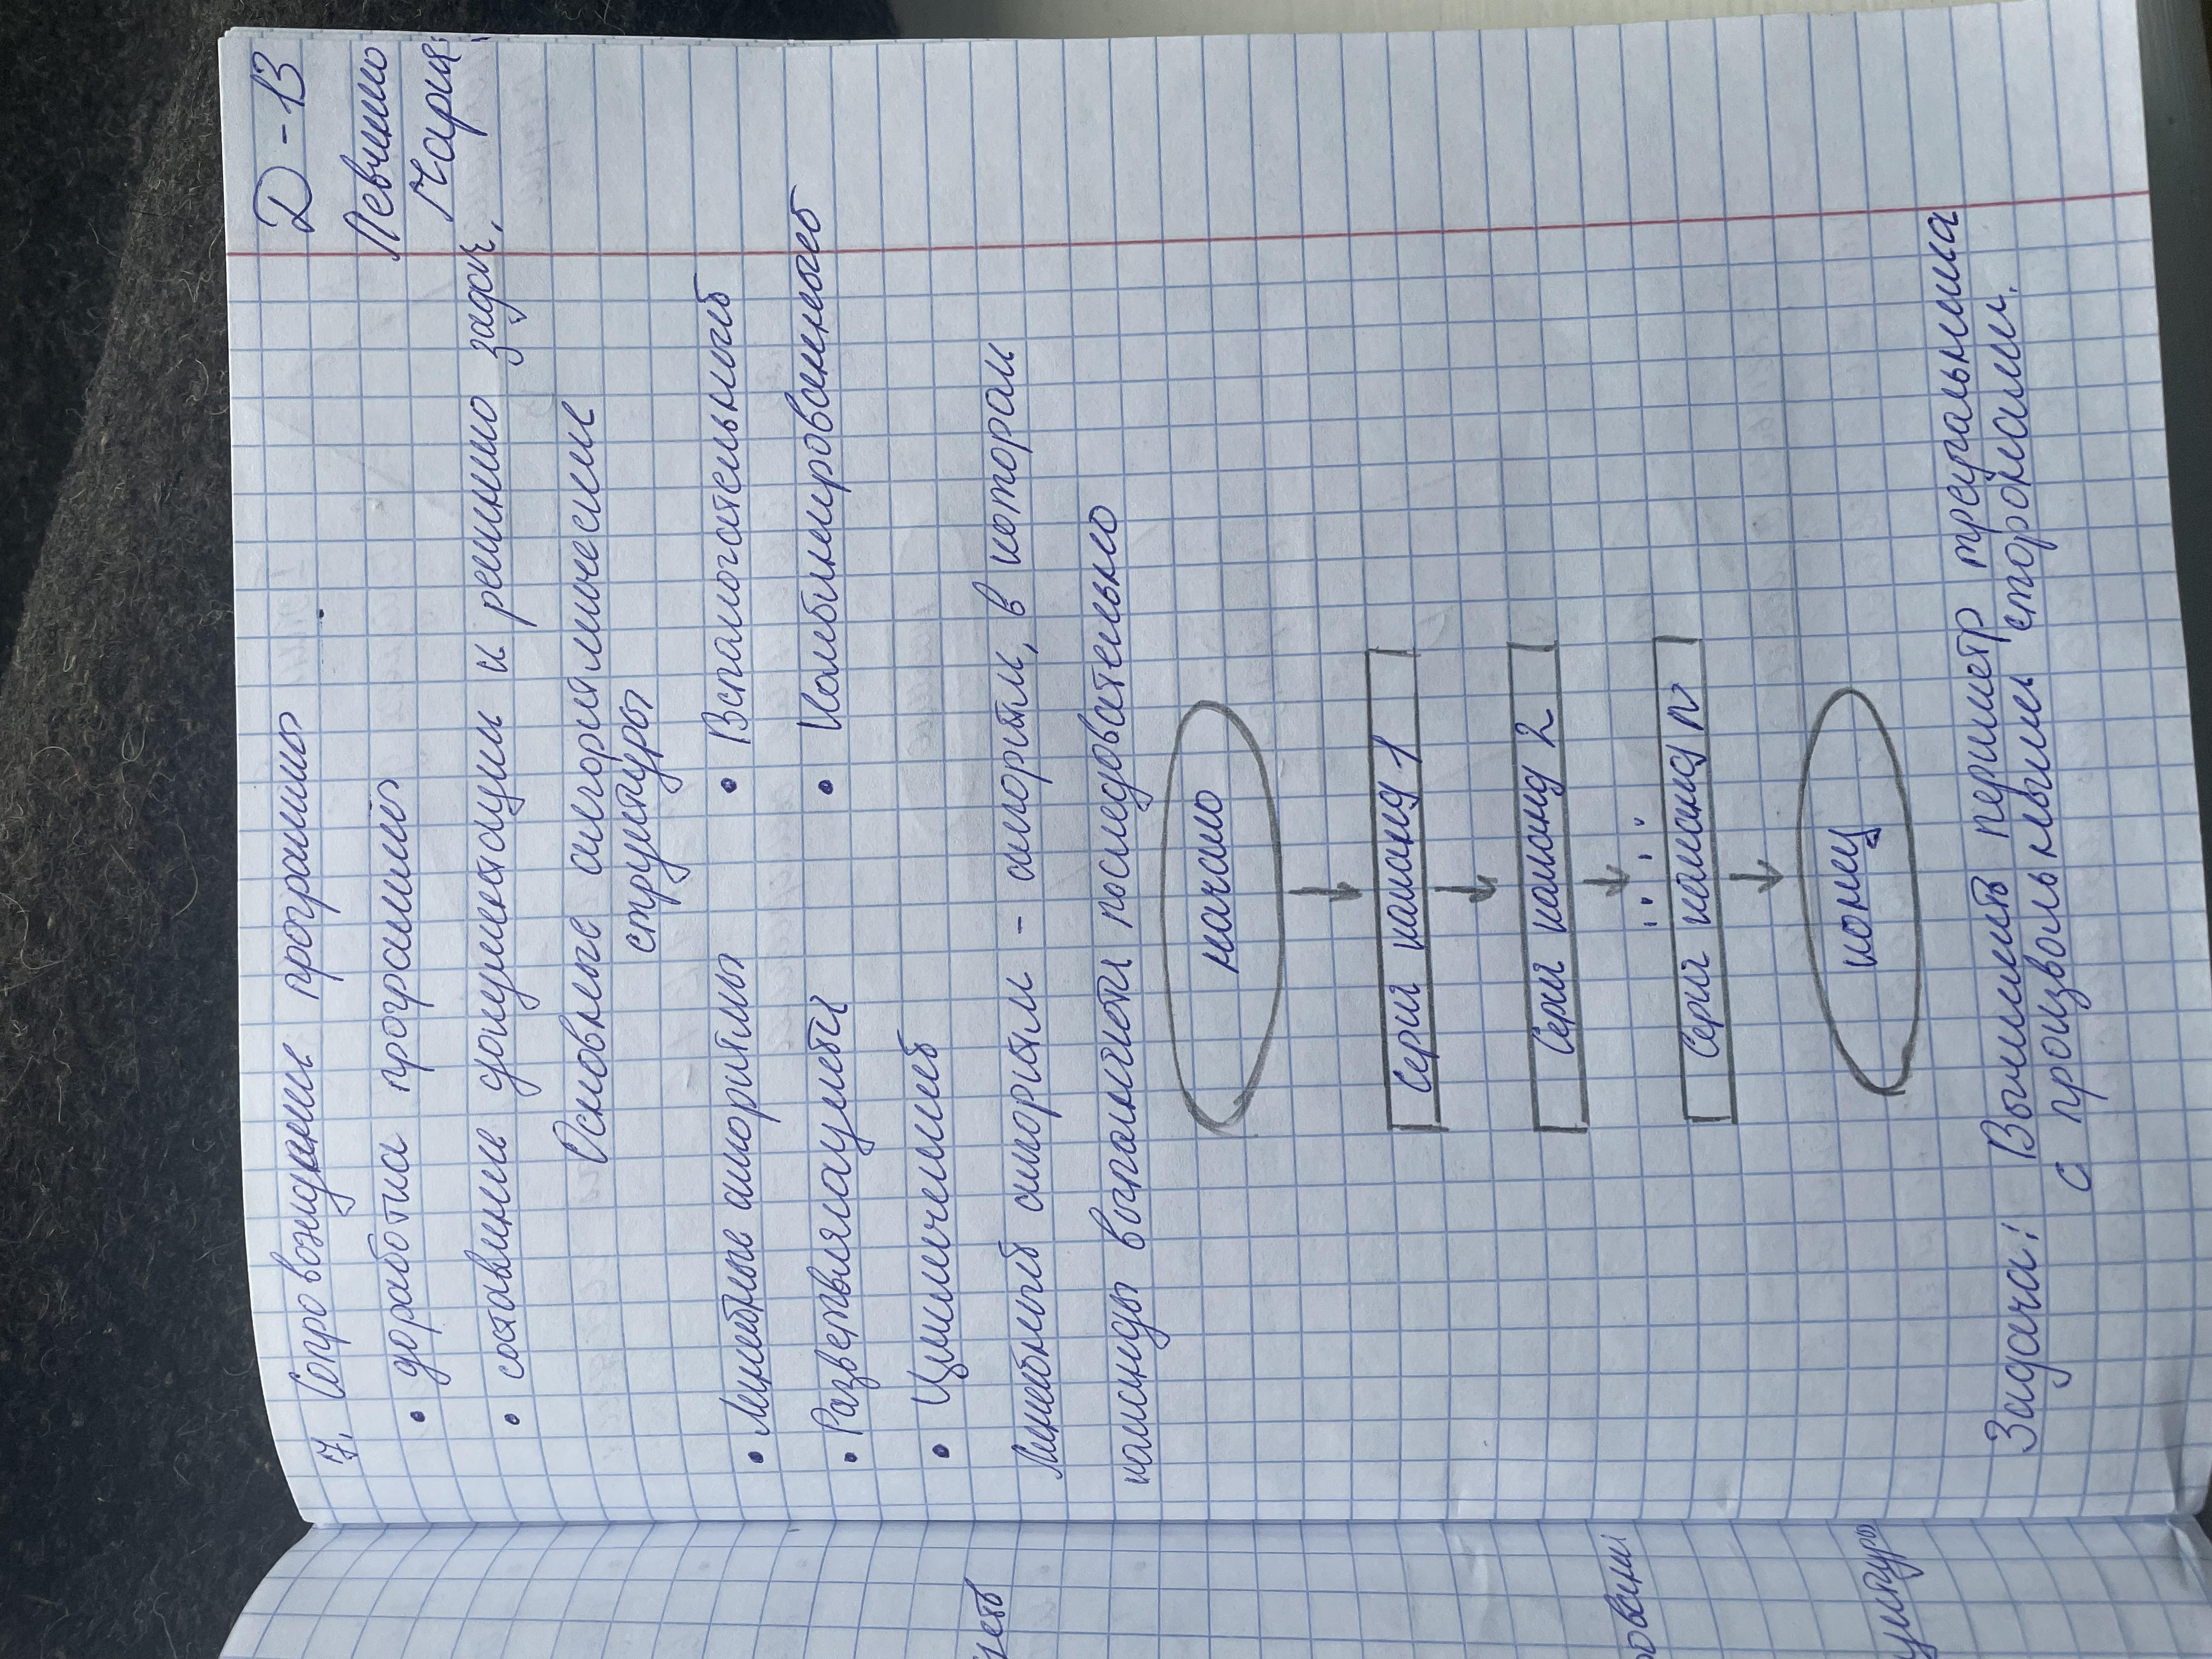 Д-13
Левчино
Мария
7. Сопровождении программы
• доработка программы
• составлении документации к решению задач.
Основные алгоритмические
структуры
• Линейные алгоритмы • Вспомогательный
• Разветвляющийся • Комбинированный
• Циклический
Линейный алгоритм - алгоритм, в котором
команды выполняются последовательно
начало
Серия команд 1
Серия команд 2
Серия команд n
конец
Задача: Вычислить периметр треугольника
с произвольными сторонами.